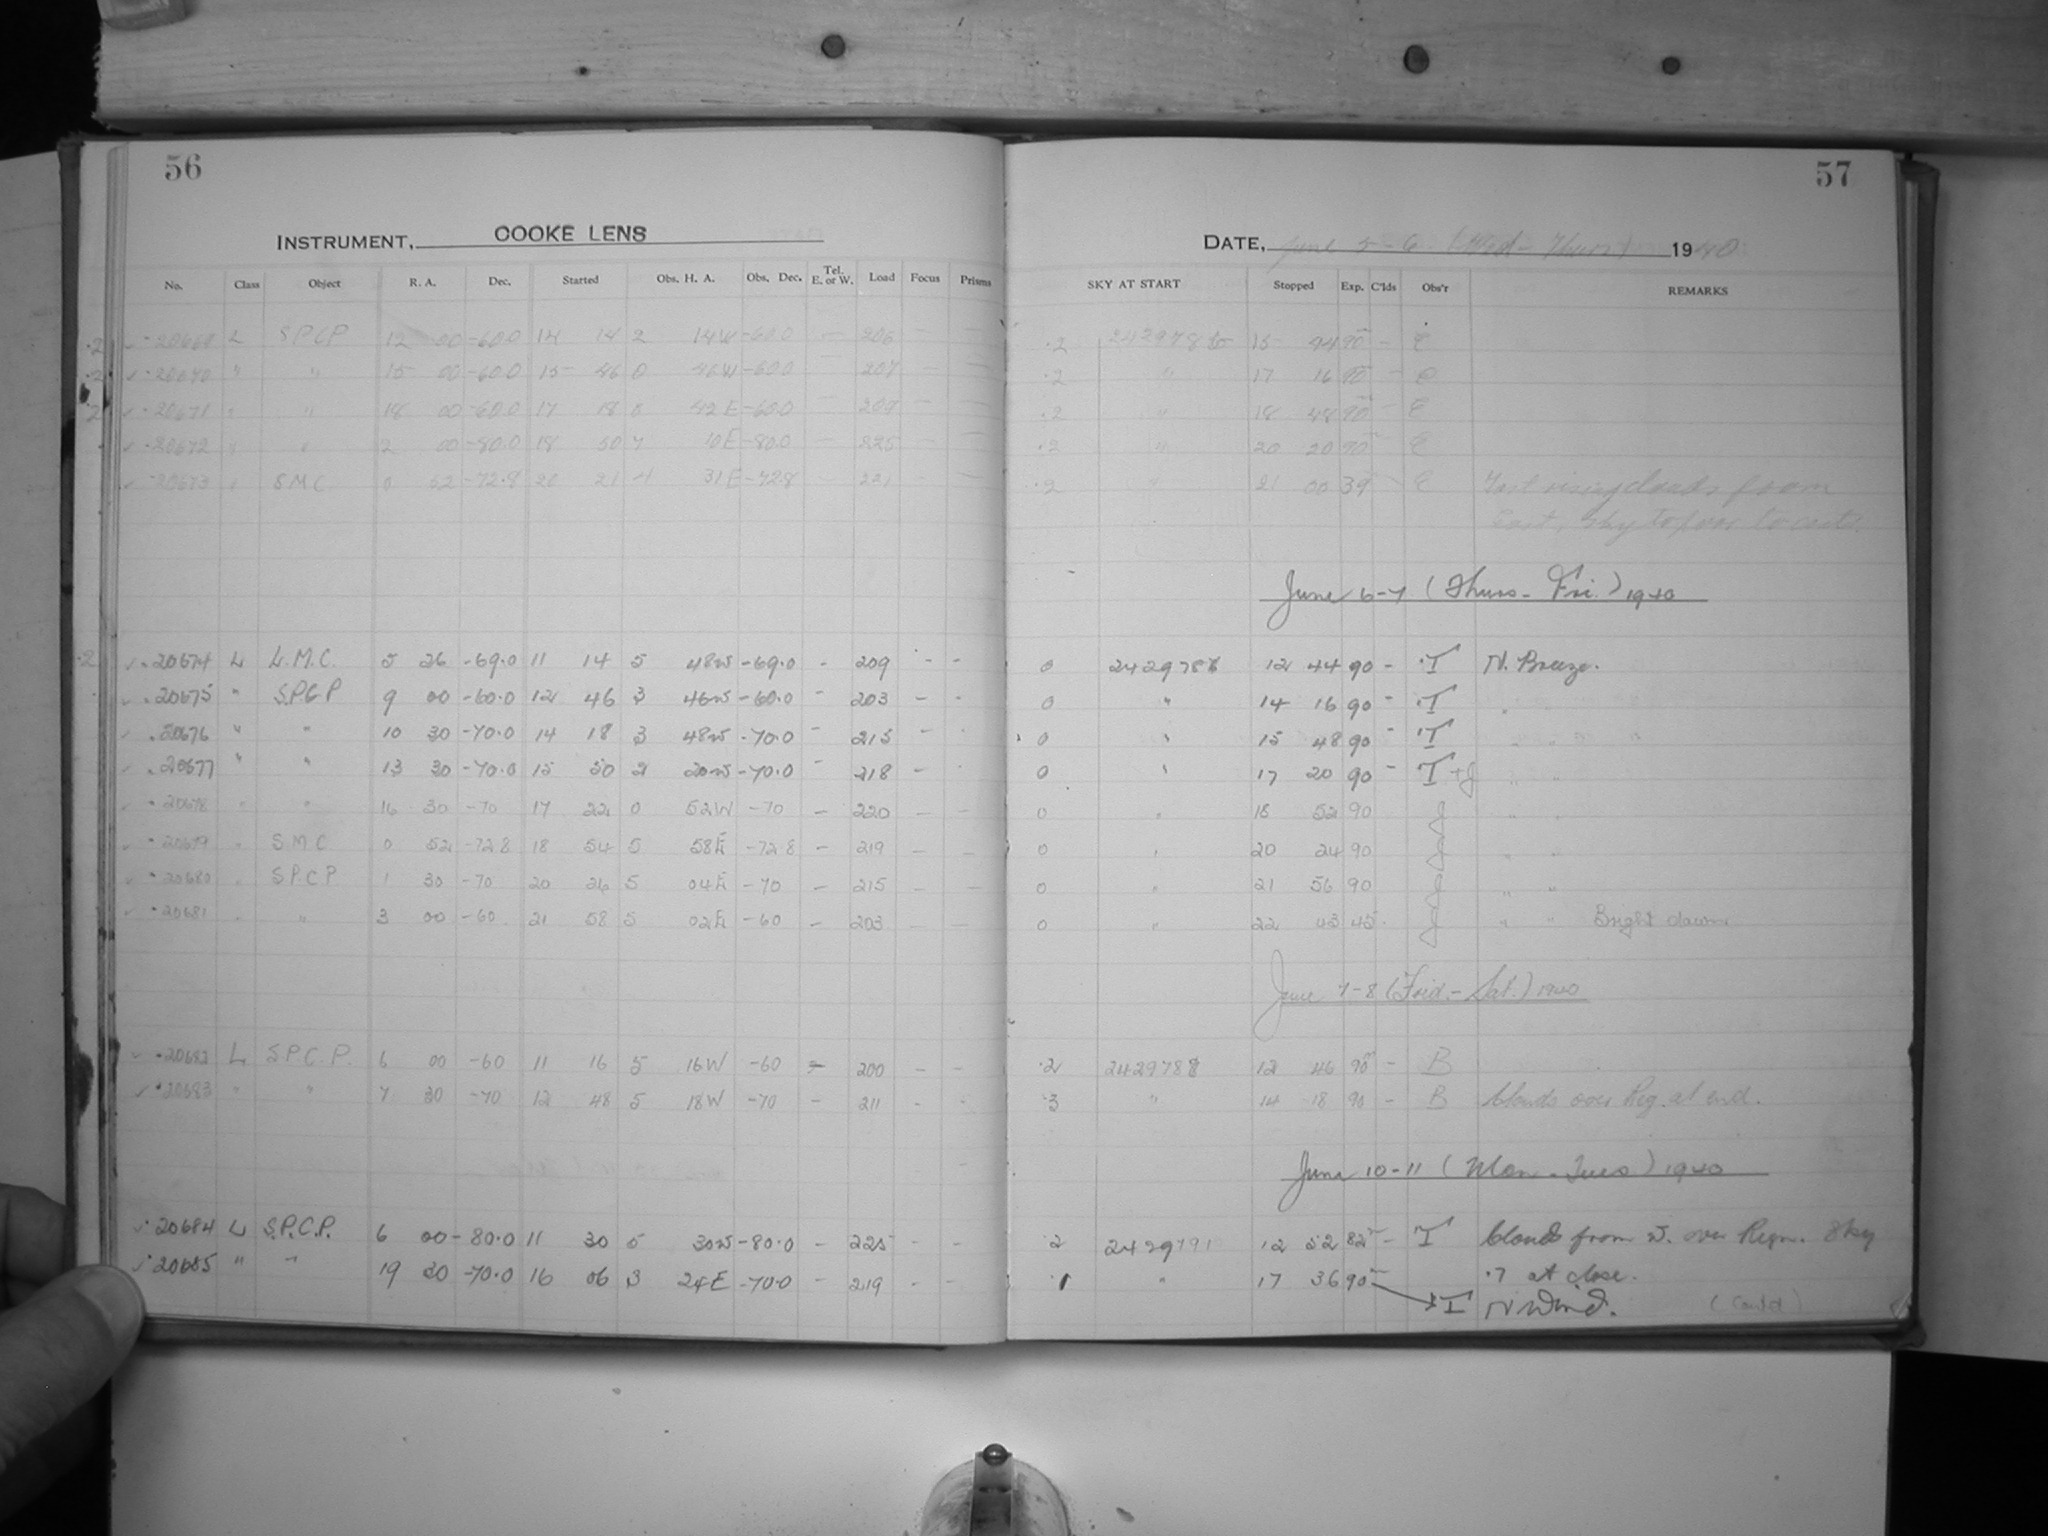 56
INSTRUMENT, COOKE LENS
No. Class Object R. A. Dec. Started Obs. H. A. Obs. Dec. Tel. E. or W. Load Focus Prisms
20669 L S.P.C.P 12 00 -60.0 14 14 2 14W -60.0 — 206 — —
20670 " " 15 00 -60.0 15 46 0 46W -60.0 — 207 — —
20671 " " 18 00 -60.0 17 18 0 42E -60.0 — 209 — —
20672 " " 2 00 -80.0 18 50 7 10E -80.0 — 225 — —
20673 " S M C 0 52 -72.8 20 21 4 31E -72.8 — 221 — —
.2 20674 L L.M.C. 5 26 -69.0 11 14 5 48W -69.0 - 209 - -
20675 " S.P.C.P 9 00 -60.0 12 46 3 46W -60.0 - 203 - -
20676 " " 10 30 -70.0 14 18 3 48W -70.0 - 215 - -
20677 " " 13 30 -70.0 15 50 2 20W -70.0 - 218 - -
20678 " " 16 30 -70 17 22 0 52W -70 - 220 - -
20679 " S M C 0 52 -72.8 18 54 5 58E -72.8 - 219 - -
20680 " S.P.C.P 1 30 -70 20 26 5 04E -70 - 215 - -
20681 " " 3 00 -60 21 58 5 02E -60 - 203 - -
20682 L S.P.C.P. 6 00 -60 11 16 5 16W -60 - 200 - -
20683 " " 7 30 -70 12 48 5 18W -70 - 211 - -
20684 L S.P.C.P. 6 00 -80.0 11 30 5 30W -80.0 - 225 - -
20685 " " 19 30 -70.0 16 06 3 24E -70.0 - 219 - -
57
DATE, June 5-6 (Wed - Thurs) 1940
SKY AT START Stopped Exp. C'lds Obs'r REMARKS
.2 15 44 90 -
.2 " 17 16 90 -
.2 " 18 48 90 -
.2 " 20 20 90
.2 " 21 00 39 - Fast rising clouds from
East, sky
June 6-7 (Thurs - Fri.) 1940
0 2429787 12 44 90 - T N. Breeze.
0 " 14 16 90 - T " "
0 " 15 48 90 - T " "
0 " 17 20 90 - T+J " "
0 " 18 52 90 J " "
0 " 20 24 90 J " "
0 " 21 56 90 J " "
0 " 22 43 45 J " " Bright dawn
June 7-8 (Frid. - Sat.) 1940
.2 2429788 12 46 90 - B
.3 " 14 18 90 - B Clouds over Reg. at end.
June 10-11 (Mon - Tues) 1940
.2 2429791 12 52 82 - T Clouds from W. over Regn. Sky
.1 " 17 36 90 .7 at close.
T N Wind. (Cont'd)